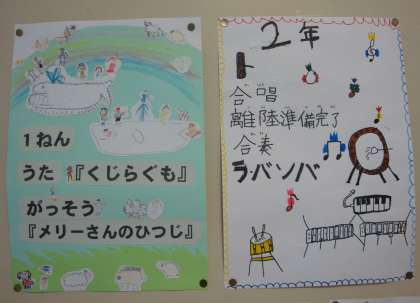 1ねん
うた『くじらぐも』
がっそう
『メリーさんのひつじ』
2年
合唱
離陸準備完了
合奏
ラ・バンバ